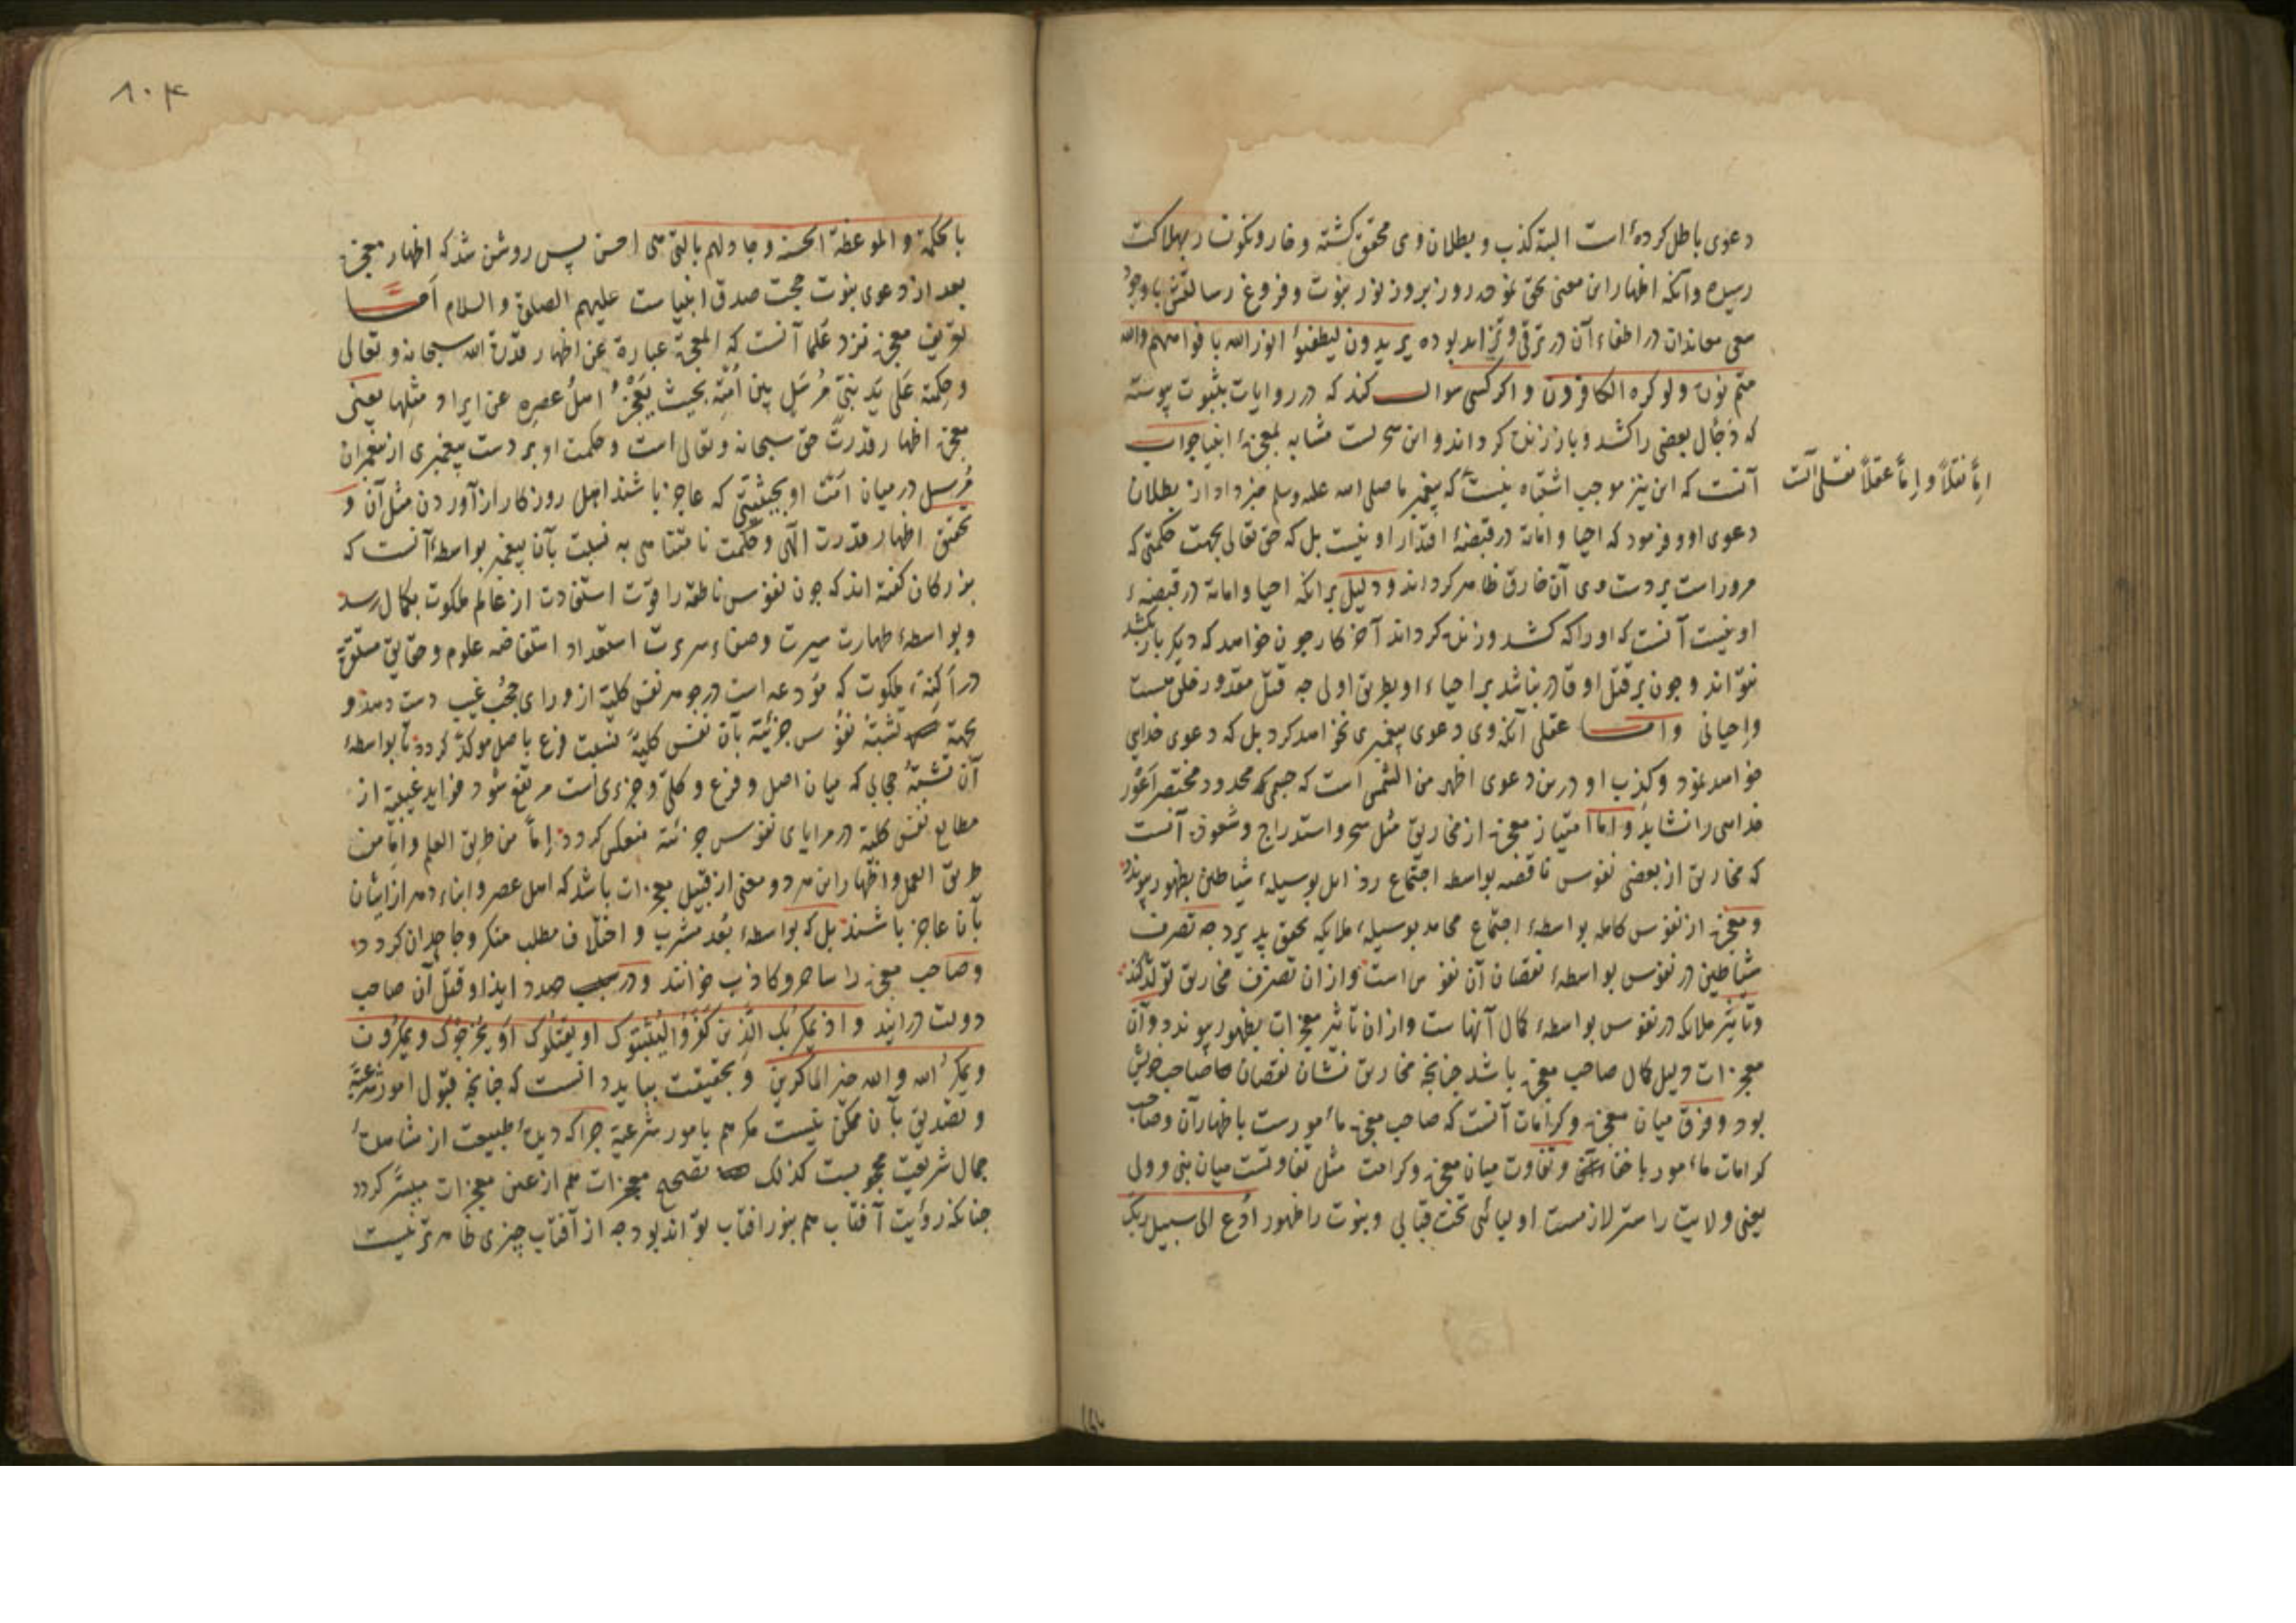 دعوی باطل کرده است البته کذب و بطلان وی محقق کشته و خار و نکونسار بهلاکت
رسیده وانکه اظهار این معنی بحق نمود روز بروز نور نبوت و فروغ رسالتش با وجود
سعی معاندان در اطفاء آن در ترقی و تزاید بوده یریدون لیطفئوا نور الله بافواههم والله
متم نوره ولو کره الکافرون و اکر کسی سوال کند که در روایات بثبوت پیوسته
که دجال بعضی را کشد و باز زنده کرداند و این سحرست مشابه بمعجزهٔ انبیا جواب
آنست که این نیز موجب اشتباه نیست که پیغمبر ما صلی الله علیه وسلم خبر داد از بطلان
اِمّا نقلاً و اِمّا عقلاً نقلی آنست
دعوی او و فرمود که احیا و اماته در قبضهٔ اقتدار او نیست بل که حق تعالی بجهت حکمتی که
مروراست بر دست وی آن خارق ظاهر کرداند و دلیل برانکه احیا و اماته در قبضهٔ
او نیست آنست که او را که کشد و زنده کرداند آخر کار چون خواهد که دیکر بار بکشد
نتواند و چون بر قتل او قادر نباشد بر احیاء او بطریق اولی چه قتل مقدور خلق هست
و احیا نی و اما عقلی آنکه وی دعوی پیغمبری نخواهد کرد بل که دعوی خدایی
خواهد نمود و کذب او درین دعوی اظهر من الشمس است که جسمی محدود مختصر اعور
خدایی را نشاید و اما امتیاز معجزه از مخاریق مثل سحر و استدراج و شعوذه آنست
که مخاریق از بعضی نفوس ناقصه بواسطه اجتماع رذایل بوسیلهٔ شیاطین بظهور پیوندد
و معجزه از نفوس کامله بواسطهٔ اجتماع محامد بوسیلهٔ ملایکه تحقق پذیرد چه تصرف
شیاطین در نفوس بواسطهٔ نقصان آن نفوس است و ازان تصرف مخاریق تولد کند
و تاثیر ملایکه در نفوس بواسطهٔ کمال آنهاست و ازان تاثیر معجزات بظهور پیوندد و آن
معجزات دلیل کمال صاحب معجزه باشد چنانچه مخاریق نشان نقصان صاحب خویش
بود و فرق میان معجزه و کرامات آنست که صاحب معجزه مأمورست باظهار آن و صاحب
کرامات مأمور باخفاء و تفاوت میان معجزه و کرامت مثل تفاوتست میان نبی و ولی
یعنی ولایت را ستر لازمست اولیائی تحت قبابی و نبوت را ظهور اُدع الی سبیل ربک
۸۰۴
بالحکمة و الموعظة الحسنه و جادلهم بالتی هی احسن پس روشن شد که اظهار معجزه
بعد از دعوی نبوت حجت صدق انبیاست علیهم الصلوة و السلام اما
تعریف معجزه نزد علما آنست که المعجزة عبارة عن اظهار قدرة الله سبحانه و تعالی
و حکمته علی ید نبیّ مُرسَل بین اُمّته بحیث یَعجِزُ اهلُ عصرِه عن ایراد مثلها یعنی
معجزه اظهار قدرت حق سبحانه و تعالی است و حکمت او بر دست پیغمبری از پیغمبران
مُرسل در میان امّت او بحیثیتی که عاجز باشند اهل روزکار از آوردن مثل آن و
تحقیق اظهار قدرت الهی و حکمت نامتناهی به نسبت بآن پیغمبر بواسطهٔ آنست که
بزرکان کفته اند که چون نفوس ناطقه را قوت استفادت از عالم ملکوت بکمال رسد
و بواسطهٔ طهارت سیرت و صفاء سریرت استعداد استفاضه علوم و حقایق
در ملکوت که مودعه است در جوهر نفس کلیّه از ورای حجُب غیب دست دهد و
بجهة تشبّهٔ نفوس جزئیّه بآن نفس کلیّه نسبت فرع باصل موکد کردد تا بواسطهٔ
آن تشبّه حجابی که میان اصل و فرع و کلی و جزوی است مرتفع شود فواید غیبیّه از
مطالع نفس کلیّه در مرایای نفوس جزئیّه منعکس کردد اِمّا من طریق العلم و اِمّا من
طریق العمل و اظهار این هر دو معنی از قبیل معجزات باشد که اهل عصر و ابناء دهر از اتیان
بآن عاجز باشند بل که بواسطهٔ بُعد مشرب و اختلاف مطلب منکر و جاحد آن کردد
و صاحب معجزه را ساحر و کاذب خوانند و در صدد ایذا و قتل آن صاحب
دولت درآیند و اذ یمکر بک الذین کفروا لیثبتوک او یقتلوک او یخرجوک و یمکرون
و یمکر الله و الله خیر الماکرین و بحقیقت بباید دانست که چنانچه قبول امور شرعیّه
و تصدیق بآن ممکن نیست مکر هم بامور شرعیّه چرا که دیدهٔ طبیعت از مشاهدهٔ
جمال شریعت محجوبست کذلک تصحیح معجزات هم از عین معجزات میسّر کردد
چنانکه رؤیت آفتاب هم بنور افتاب تواند بود چه از آفتاب چیزی ظاهرتر نیست